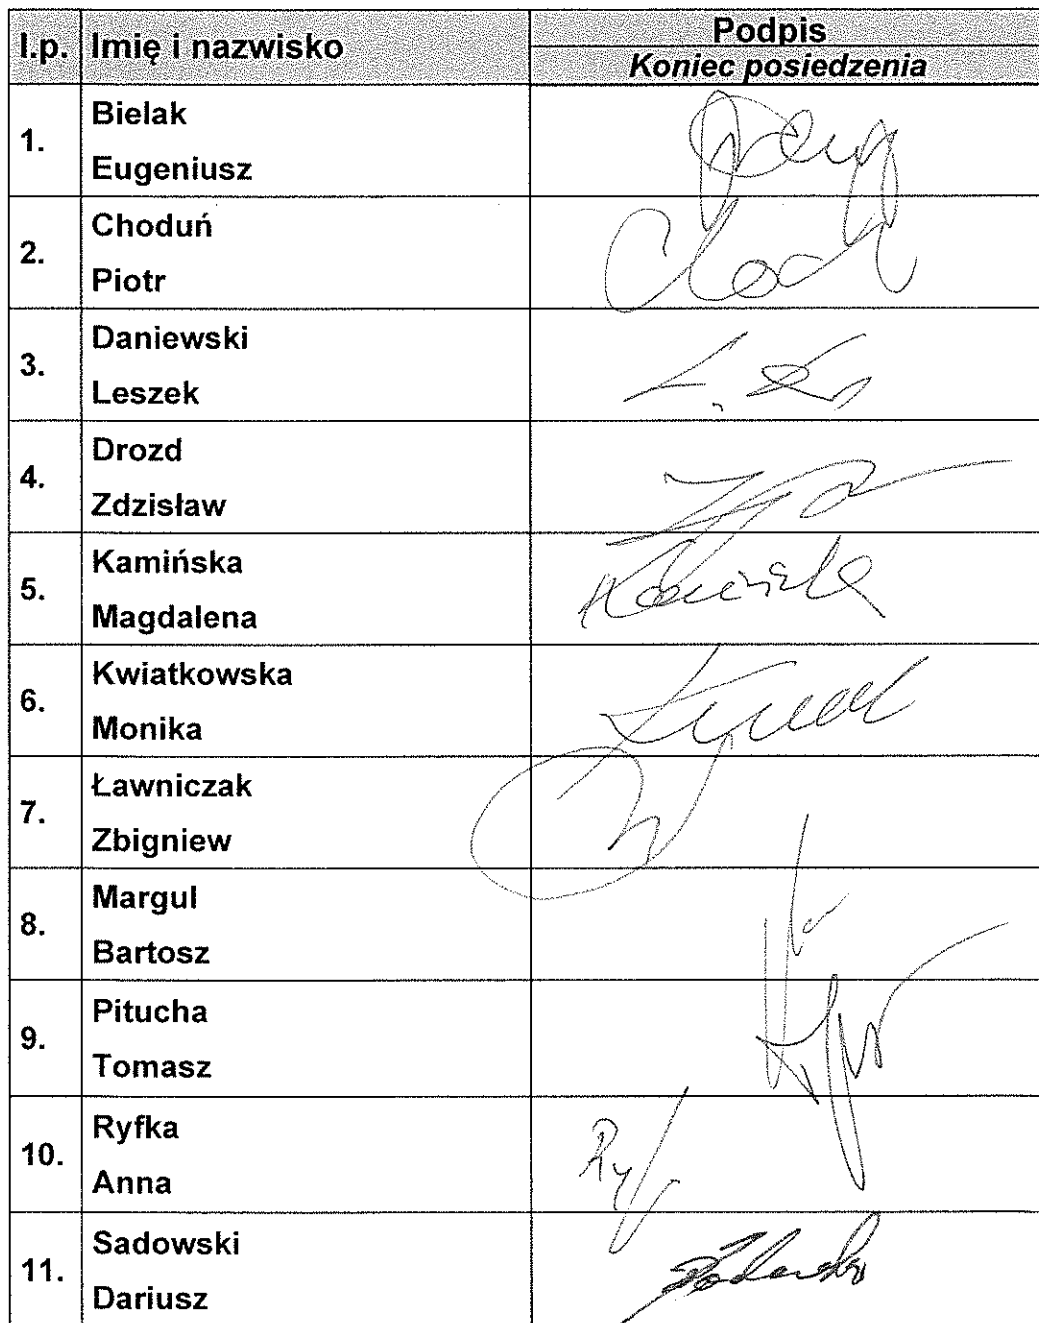 l.p. Imię i nazwisko Podpis
Koniec posiedzenia
1. Bielak
Eugeniusz
2. Choduń
Piotr
3. Daniewski
Leszek
4. Drozd
Zdzisław
5. Kamińska
Magdalena
6. Kwiatkowska
Monika
7. Ławniczak
Zbigniew
8. Margul
Bartosz
9. Pitucha
Tomasz
10. Ryfka
Anna
11. Sadowski
Dariusz